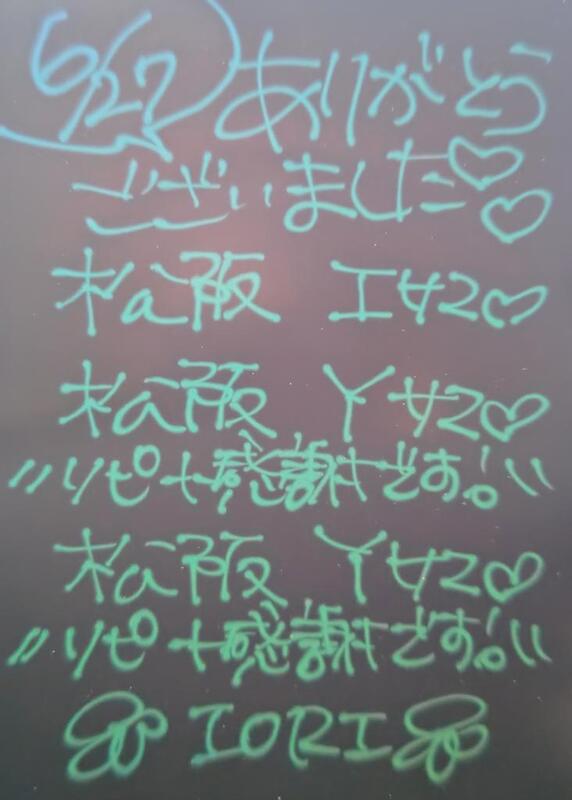 6/27 ありがとう
ございました♡♡
松阪 Iサン♡
松阪 Yサン♡
〃リピ十感謝です!!〃
松阪 Yサン♡
〃リピ十感謝です!!〃
IORI